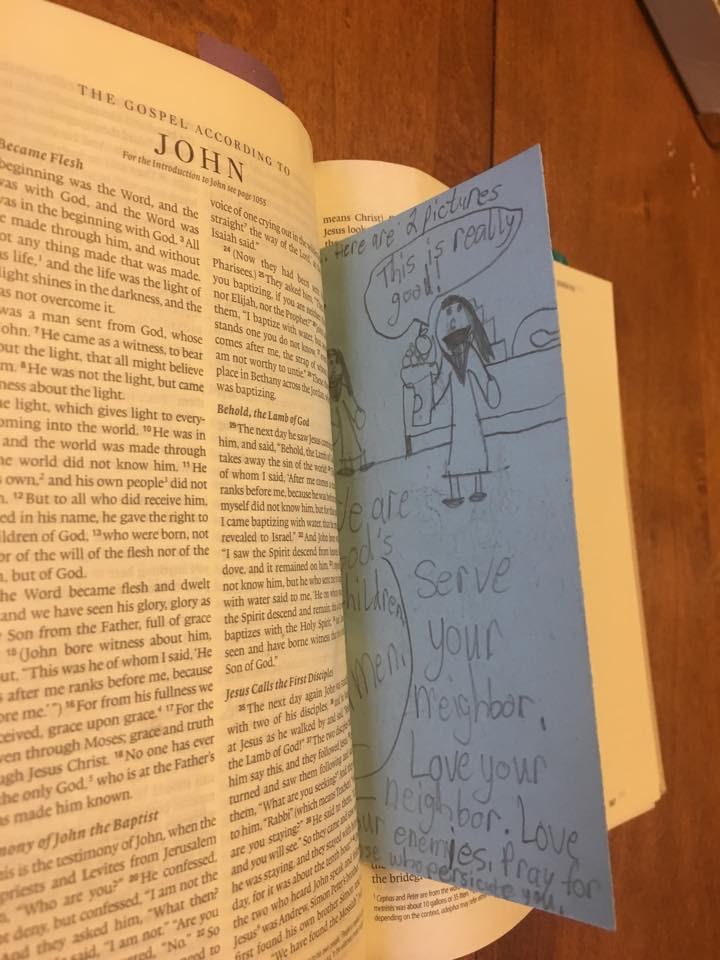 THE GOSPEL ACCORDING TO
JOHN
For the Introduction to John see page 1055
Became Flesh
beginning was the Word, and the
was with God, and the Word was
was in the beginning with God. ³All
made through him, and without
ot any thing made that was made.
as life,¹ and the life was the light of
light shines in the darkness, and the
as not overcome it.
was a man sent from God, whose
John. ⁷He came as a witness, to bear
out the light, that all might believe
m. ⁸He was not the light, but came
ness about the light.
e light, which gives light to every-
oming into the world. ¹⁰He was in
and the world was made through
he world did not know him. ¹¹He
own,² and his own people³ did not
. ¹²But to all who did receive him,
ed in his name, he gave the right to
ildren of God, ¹³who were born, not
or of the will of the flesh nor of the
, but of God.
he Word became flesh and dwelt
and we have seen his glory, glory as
Son from the Father, full of grace
¹⁵(John bore witness about him,
ut, "This was he of whom I said, 'He
after me ranks before me, because
ore me.'") ¹⁶For from his fullness we
ceived, grace upon grace.⁴ ¹⁷For the
ven through Moses; grace and truth
ugh Jesus Christ. ¹⁸No one has ever
he only God,⁵ who is at the Father's
as made him known.
mony of John the Baptist
his is the testimony of John, when the
priests and Levites from Jerusalem
"Who are you?" ²⁰He confessed,
t deny, but confessed, "I am not the
And they asked him, "What then?
said, "I am not." "Are you
"No." ²²So
voice of one crying out in the
straight the way of the Lord,'
Isaiah said."
²⁴(Now they had been
Pharisees.) ²⁵They asked him,
you baptizing, if you are neither
nor Elijah, nor the Prophet?"
them, "I baptize with water, but
stands one you do not know,
comes after me, the strap of whose
am not worthy to untie." ²⁸These
place in Bethany across the Jordan,
was baptizing.
Behold, the Lamb of God
²⁹The next day he saw Jesus
him, and said, "Behold, the Lamb of
takes away the sin of the world!
of whom I said, 'After me comes
ranks before me, because he was
myself did not know him, but for
I came baptizing with water, that he
revealed to Israel." ³²And John bore
"I saw the Spirit descend from
dove, and it remained on him.
not know him, but he who sent me
with water said to me, 'He on whom
the Spirit descend and remain, this
baptizes with the Holy Spirit.'
seen and have borne witness that
Son of God."
Jesus Calls the First Disciples
³⁵The next day again John was
with two of his disciples,
at Jesus as he walked by and said,
the Lamb of God!" ³⁷The two disciples
him say this, and they followed Jesus.
turned and saw them following and
them, "What are you seeking?" And they
to him, "Rabbi" (which means Teacher),
are you staying?" ³⁹He said to them,
and you will see." So they came and saw
he was staying, and they stayed with
day, for it was about the tenth hour.
the two who heard John speak and
Jesus was Andrew, Simon Peter's brother.
first found his own brother Simon and
"We have found the Messiah"
means Christ)
Jesus look
Here are 2 pictures
This is really
good!
We are
God's
children
men.
Serve
your
neighbor.
Love your
neighbor. Love
ur enemies, Pray for
se who persicute you.
the bridegr
Cephas and Peter are from the wor
metrētēs was about 10 gallons or 35 liters
depending on the context, adelphoi may refer